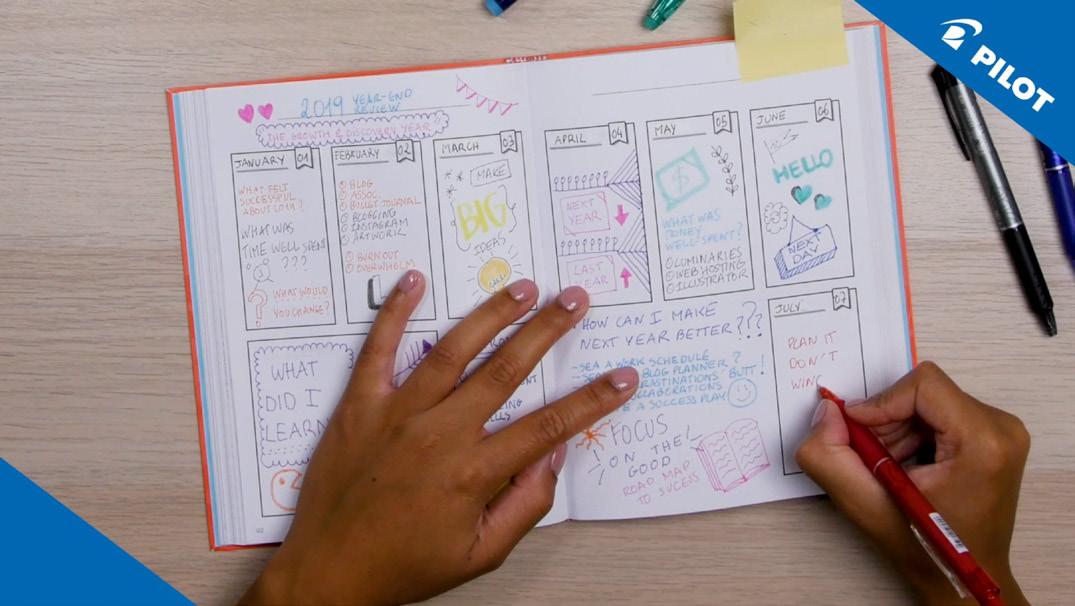 PILOT
2019 YEAR-END
REVIEW
THE GROWTH & DISCOVERY YEAR
JANUARY 01
WHAT FELT
SUCCESSFUL
ABOUT 2019?
WHAT WAS
TIME WELL SPENT
???
? WHAT WOULD
YOU CHANGE?
FEBRUARY 02
BLOG
ASSOC.
BULLET JOURNAL
BLOGGING
INSTAGRAM
ARTWORK
BURN OUT
OVERWHELM
MARCH 03
MAKE
BIG
IDEAS
APRIL 04
NEXT
YEAR
LAST
YEAR
MAY 05
$
WHAT WAS
MONEY
WELL SPENT?
LUMINARIES
WEBHOSTING
ILLUSTRATOR
JUNE 06
HELLO
NEXT
DAY
WHAT
DID I
LEARN
HOW CAN I MAKE
NEXT YEAR BETTER???
-SEA A WORK SCHEDULE
BLOG PLANNER?
BUTT!
A SUCCESS PLAY
FOCUS
ON THE
GOOD
ROAD MAP
TO SUCESS
JULY 07
PLAN IT
DON'T
WING